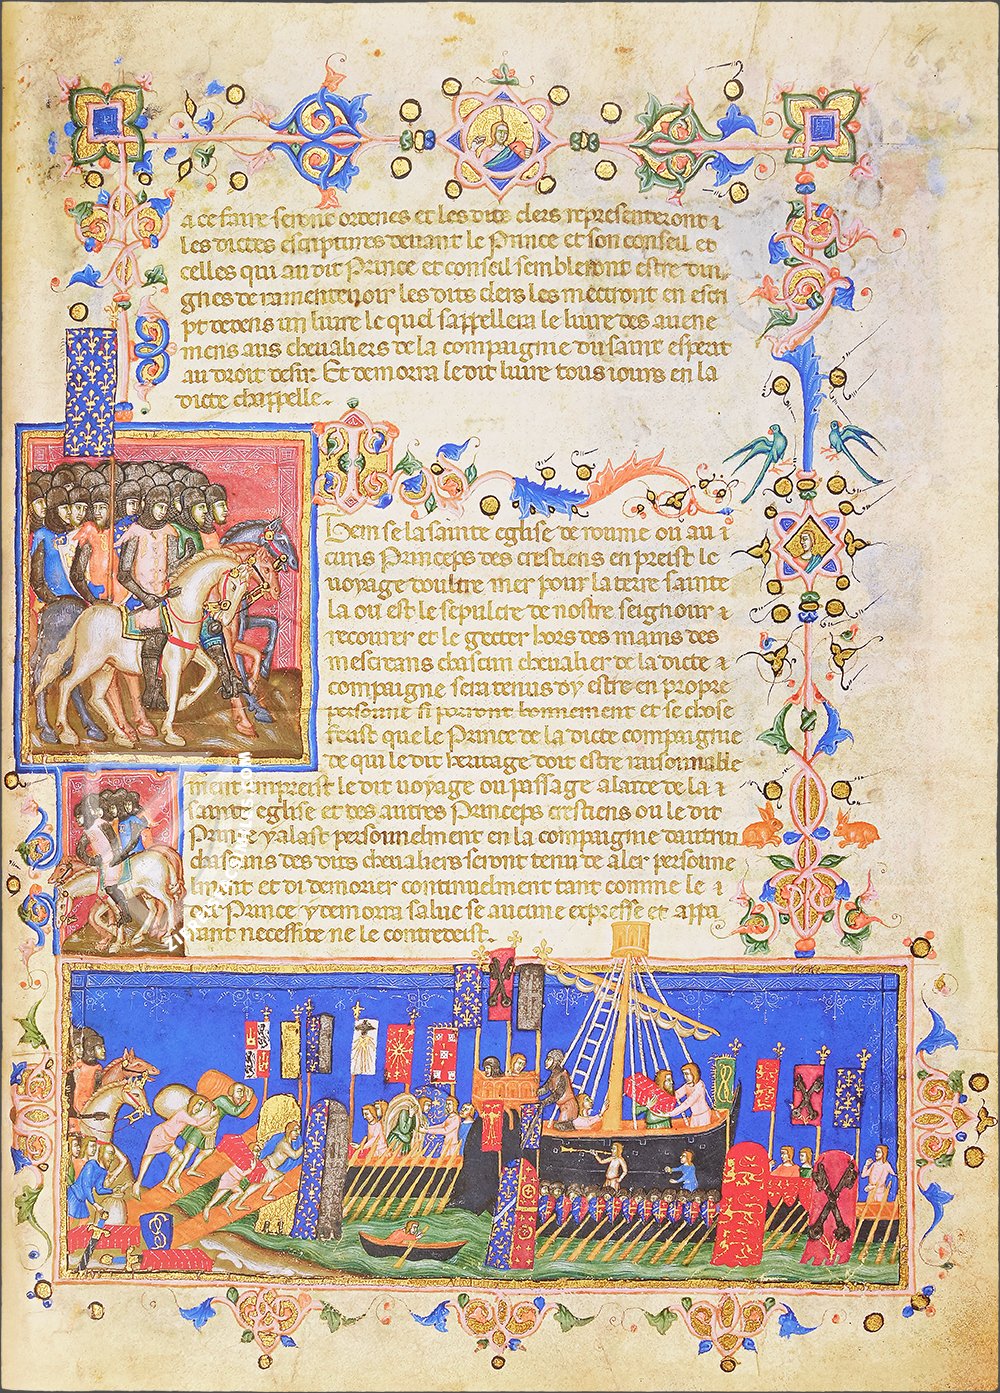 a ce faire seront ordenes et les dits clers representeront
les dictes escriptures devant le Prince et son conseil et
celles qui au dit Prince et conseil sembleront estre dui
gnes de ramentevoir les dits clers les mettront en escri
pt dedens un livre le quel sappellera le livre des avene
mens aus chevaliers de la compaignie du saint esperit
au droit desir. Et demorra le dit livre tous iours en la
dicte chappelle.
Item se la sainte eglise de roume ou au
cuns Princeps des crestiens en preist le
voyage doultre mer pour la terre sainte
la ou est le sepulcre de nostre seignour
recourer et le getter hors des mains des
mescreans chascun chevalier de la dicte
compaignie sera tenus dy estre en propre
personne si porront bonnement et se chose
feust que le Prince de la dicte compaignie
de qui le dit heritage doit estre raisonnable
ment empreist le dit voyage ou passage a laide de la
sainte eglise et des autres Princeps crestiens ou le dit
Prince y alast personnelment en la compaignie dautrui
chascuns des dits chevaliers seront tenu de aler personne
lment et di demorier continuelment tant comme le
dit Prince y demorra salve se aucune expresse et appa
rant necessite ne le contredeist.